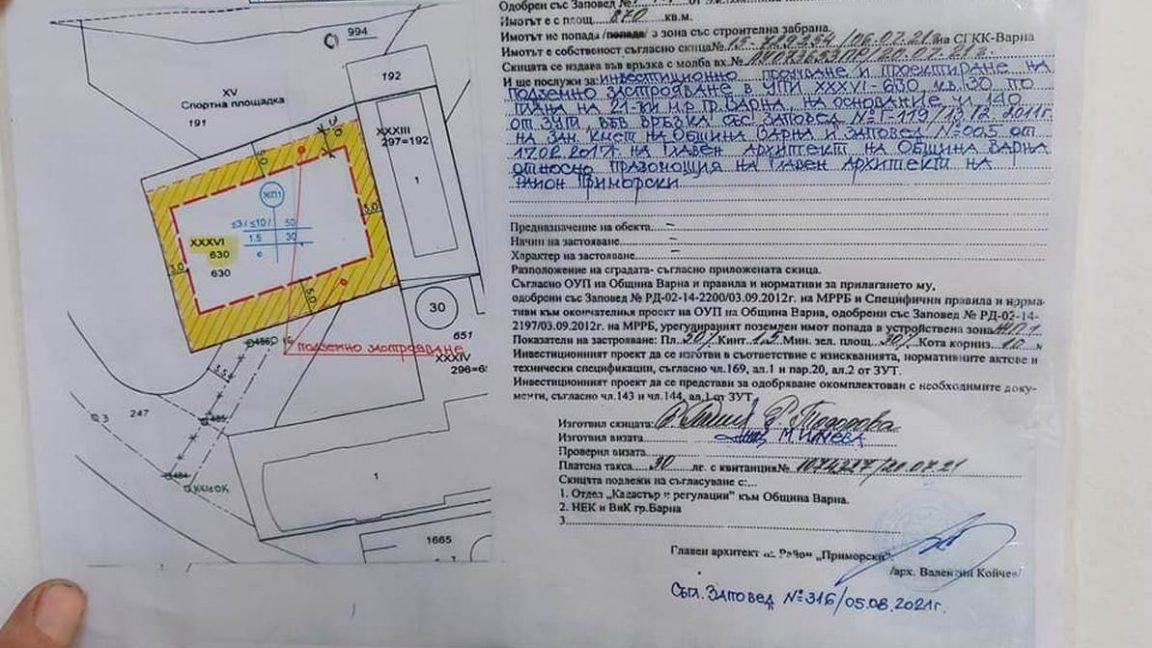 994
192
XV
Спортна площадка
191
XXXIII
297=192
1
5.0
ЖП1
≤3/≤10/ 50
1.5 30
3.0
XXXVI
630
630
3.0
5.0
30
651
подземно застрояване
XXXIV
296=6
3.5
3
247
1
1665
Одобрен със Заповед №
Имотът е с площ 870 кв.м.
Имотът не попада /попада/ в зона със строителна забрана.
Имотът е собственост съгласно скица№ 15-729354/06.07.21г. на СГКК-Варна
Скицата се издава във връзка с молба вх.№ /20.07.21г.
И ще послужи за: инвестиционно проучване и проектиране на
подземно застрояване в УПИ XXXVI-630, кв. 30 по
плана на 21-ви м.р. гр. Варна, на основание чл. 140
от ЗУТ, във връзка със Заповед № Г-119/13.12.2011г.
на Зам. кмет на Община Варна и Заповед № 005 от
17.02.2017г. на Главен архитект на Община Варна
относно правомощия на главен архитект на
район Приморски
Предназначение на обекта. –
Начин на застояване. –
Характер на застояване. –
Разположение на сградата- съгласно приложената скица.
Съгласно ОУП на Община Варна и правила и нормативи за прилагането му,
одобрени със Заповед № РД-02-14-2200/03.09.2012г. на МРРБ и Специфични правила и норма-
тиви към окончателния проект на ОУП на Община Варна, одобрени със Заповед № РД-02-14-
2197/03.09.2012г. на МРРБ, урегулираният поземлен имот попада в устройствена зона ЖП1
Показатели на застрояване: Пл. 50% Кинт. 1,5 Мин. зел. площ. 30% Кота корниз 10 м
Инвестиционният проект да се изготви в съответствие с изискванията, нормативните актове и
технически спецификации, съгласно чл.169, ал.1 и пар.20, ал.2 от ЗУТ.
Инвестиционният проект да се представи за одобряване окомплектован с необходимите доку-
менти, съгласно чл.143 и чл.144, ал.1 от ЗУТ
Изготвил скицата: Р. Тодорова
Изготвил визата М. Илиева
Проверил визата
Платена такса. 30 лв. с квитанция№ 1074327/20.07.21
Скицата подлежи на съгласуване с:
1. Отдел „Кадастър и регулации" към Община Варна.
2. НЕК и ВиК гр.Варна
3
Главен архитект на Район „Приморски"
/арх. Валентин Койчев/
Съгл. Заповед № 316/05.08.2021г.